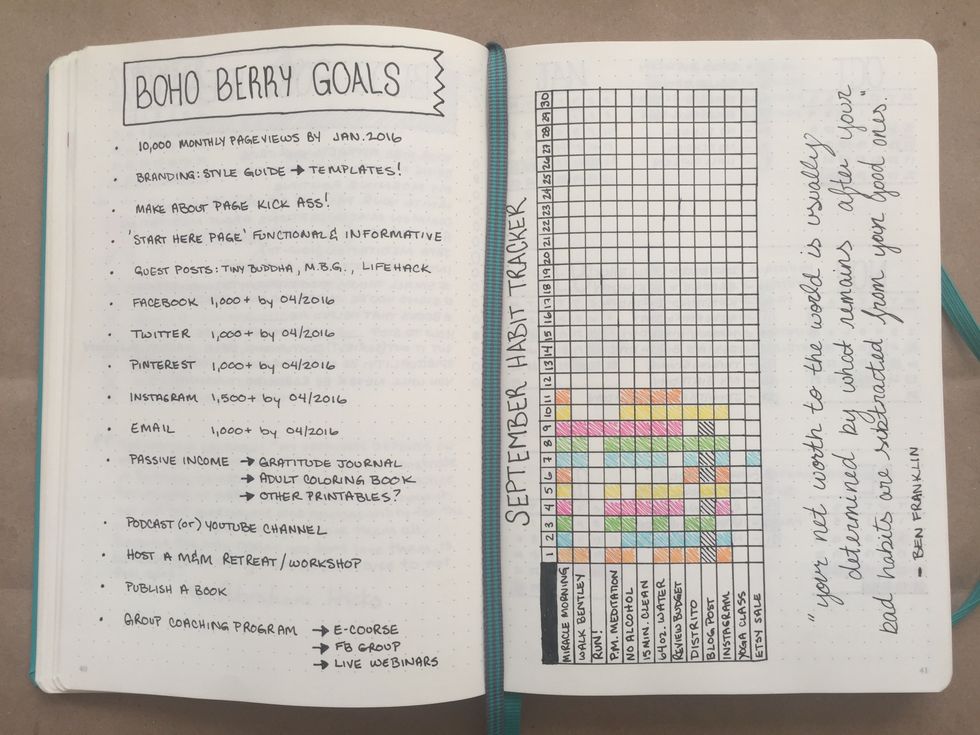 BOHO BERRY GOALS
• 10,000 MONTHLY PAGEVIEWS BY JAN. 2016
• BRANDING: STYLE GUIDE → TEMPLATES!
• MAKE ABOUT PAGE KICK ASS!
• 'START HERE PAGE' FUNCTIONAL & INFORMATIVE
• GUEST POSTS: TINY BUDDHA, M.B.G., LIFEHACK
• FACEBOOK 1,000+ by 04/2016
• TWITTER 1,000+ by 04/2016
• PINTEREST 1,000+ by 04/2016
• INSTAGRAM 1,500+ by 04/2016
• EMAIL 1,000+ by 04/2016
• PASSIVE INCOME → GRATITUDE JOURNAL
→ ADULT COLORING BOOK
→ OTHER PRINTABLES?
• PODCAST (or) YOUTUBE CHANNEL
• HOST A M&M RETREAT/WORKSHOP
• PUBLISH A BOOK
• GROUP COACHING PROGRAM → E-COURSE
→ FB GROUP
→ LIVE WEBINARS
40
SEPTEMBER HABIT TRACKER
1 2 3 4 5 6 7 8 9 10 11 12 13 14 15 16 17 18 19 20 21 22 23 24 25 26 27 28 29 30
MIRACLE MORNING
WALK BENTLEY
RUN!
P.M. MEDITATION
NO ALCOHOL
15 MIN. CLEAN
64 OZ. WATER
REVIEW BUDGET
DISTRITO
BLOG POST
INSTAGRAM
YOGA CLASS
ETSY SALE
"your net worth to the world is usually
determined by what remains after your
bad habits are subtracted from your good ones."
- BEN FRANKLIN
41